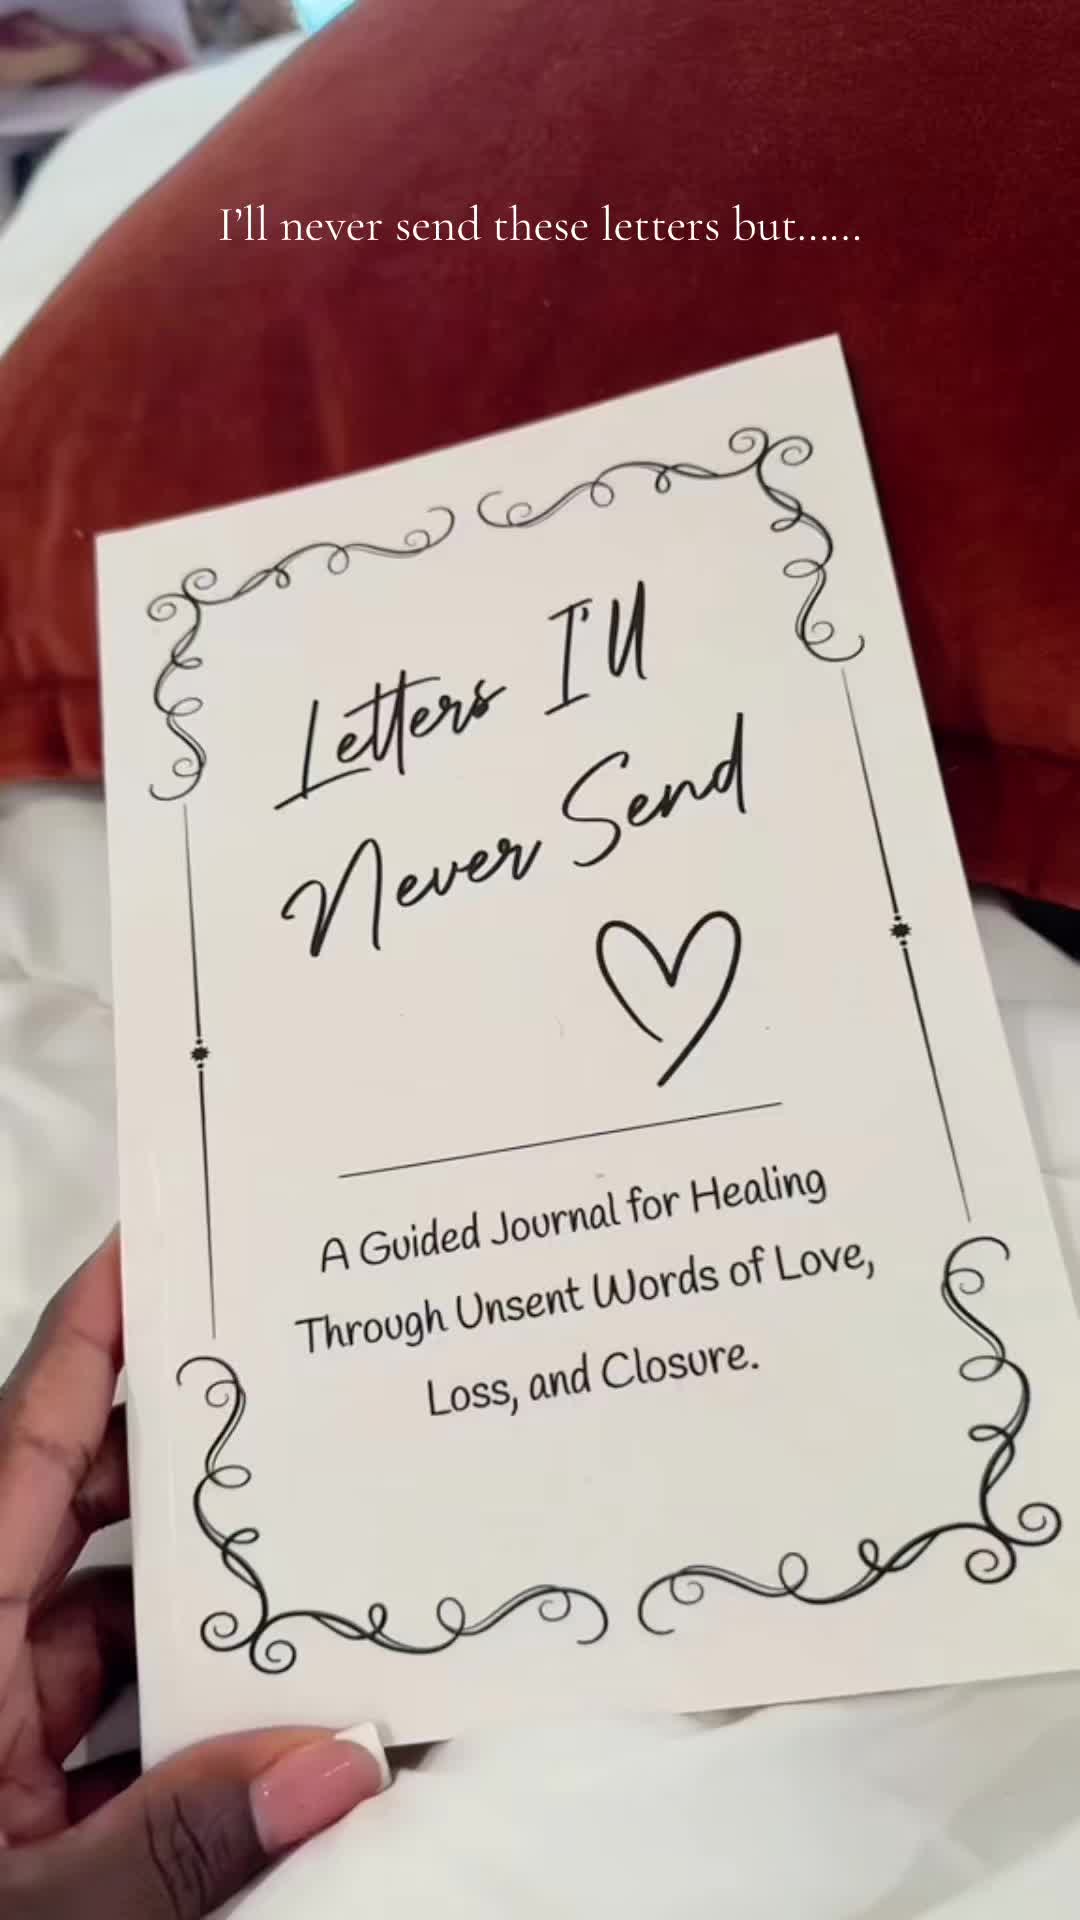 I'll never send these letters but......
Letters I'll
Never Send
A Guided Journal for Healing
Through Unsent Words of Love,
Loss, and Closure.